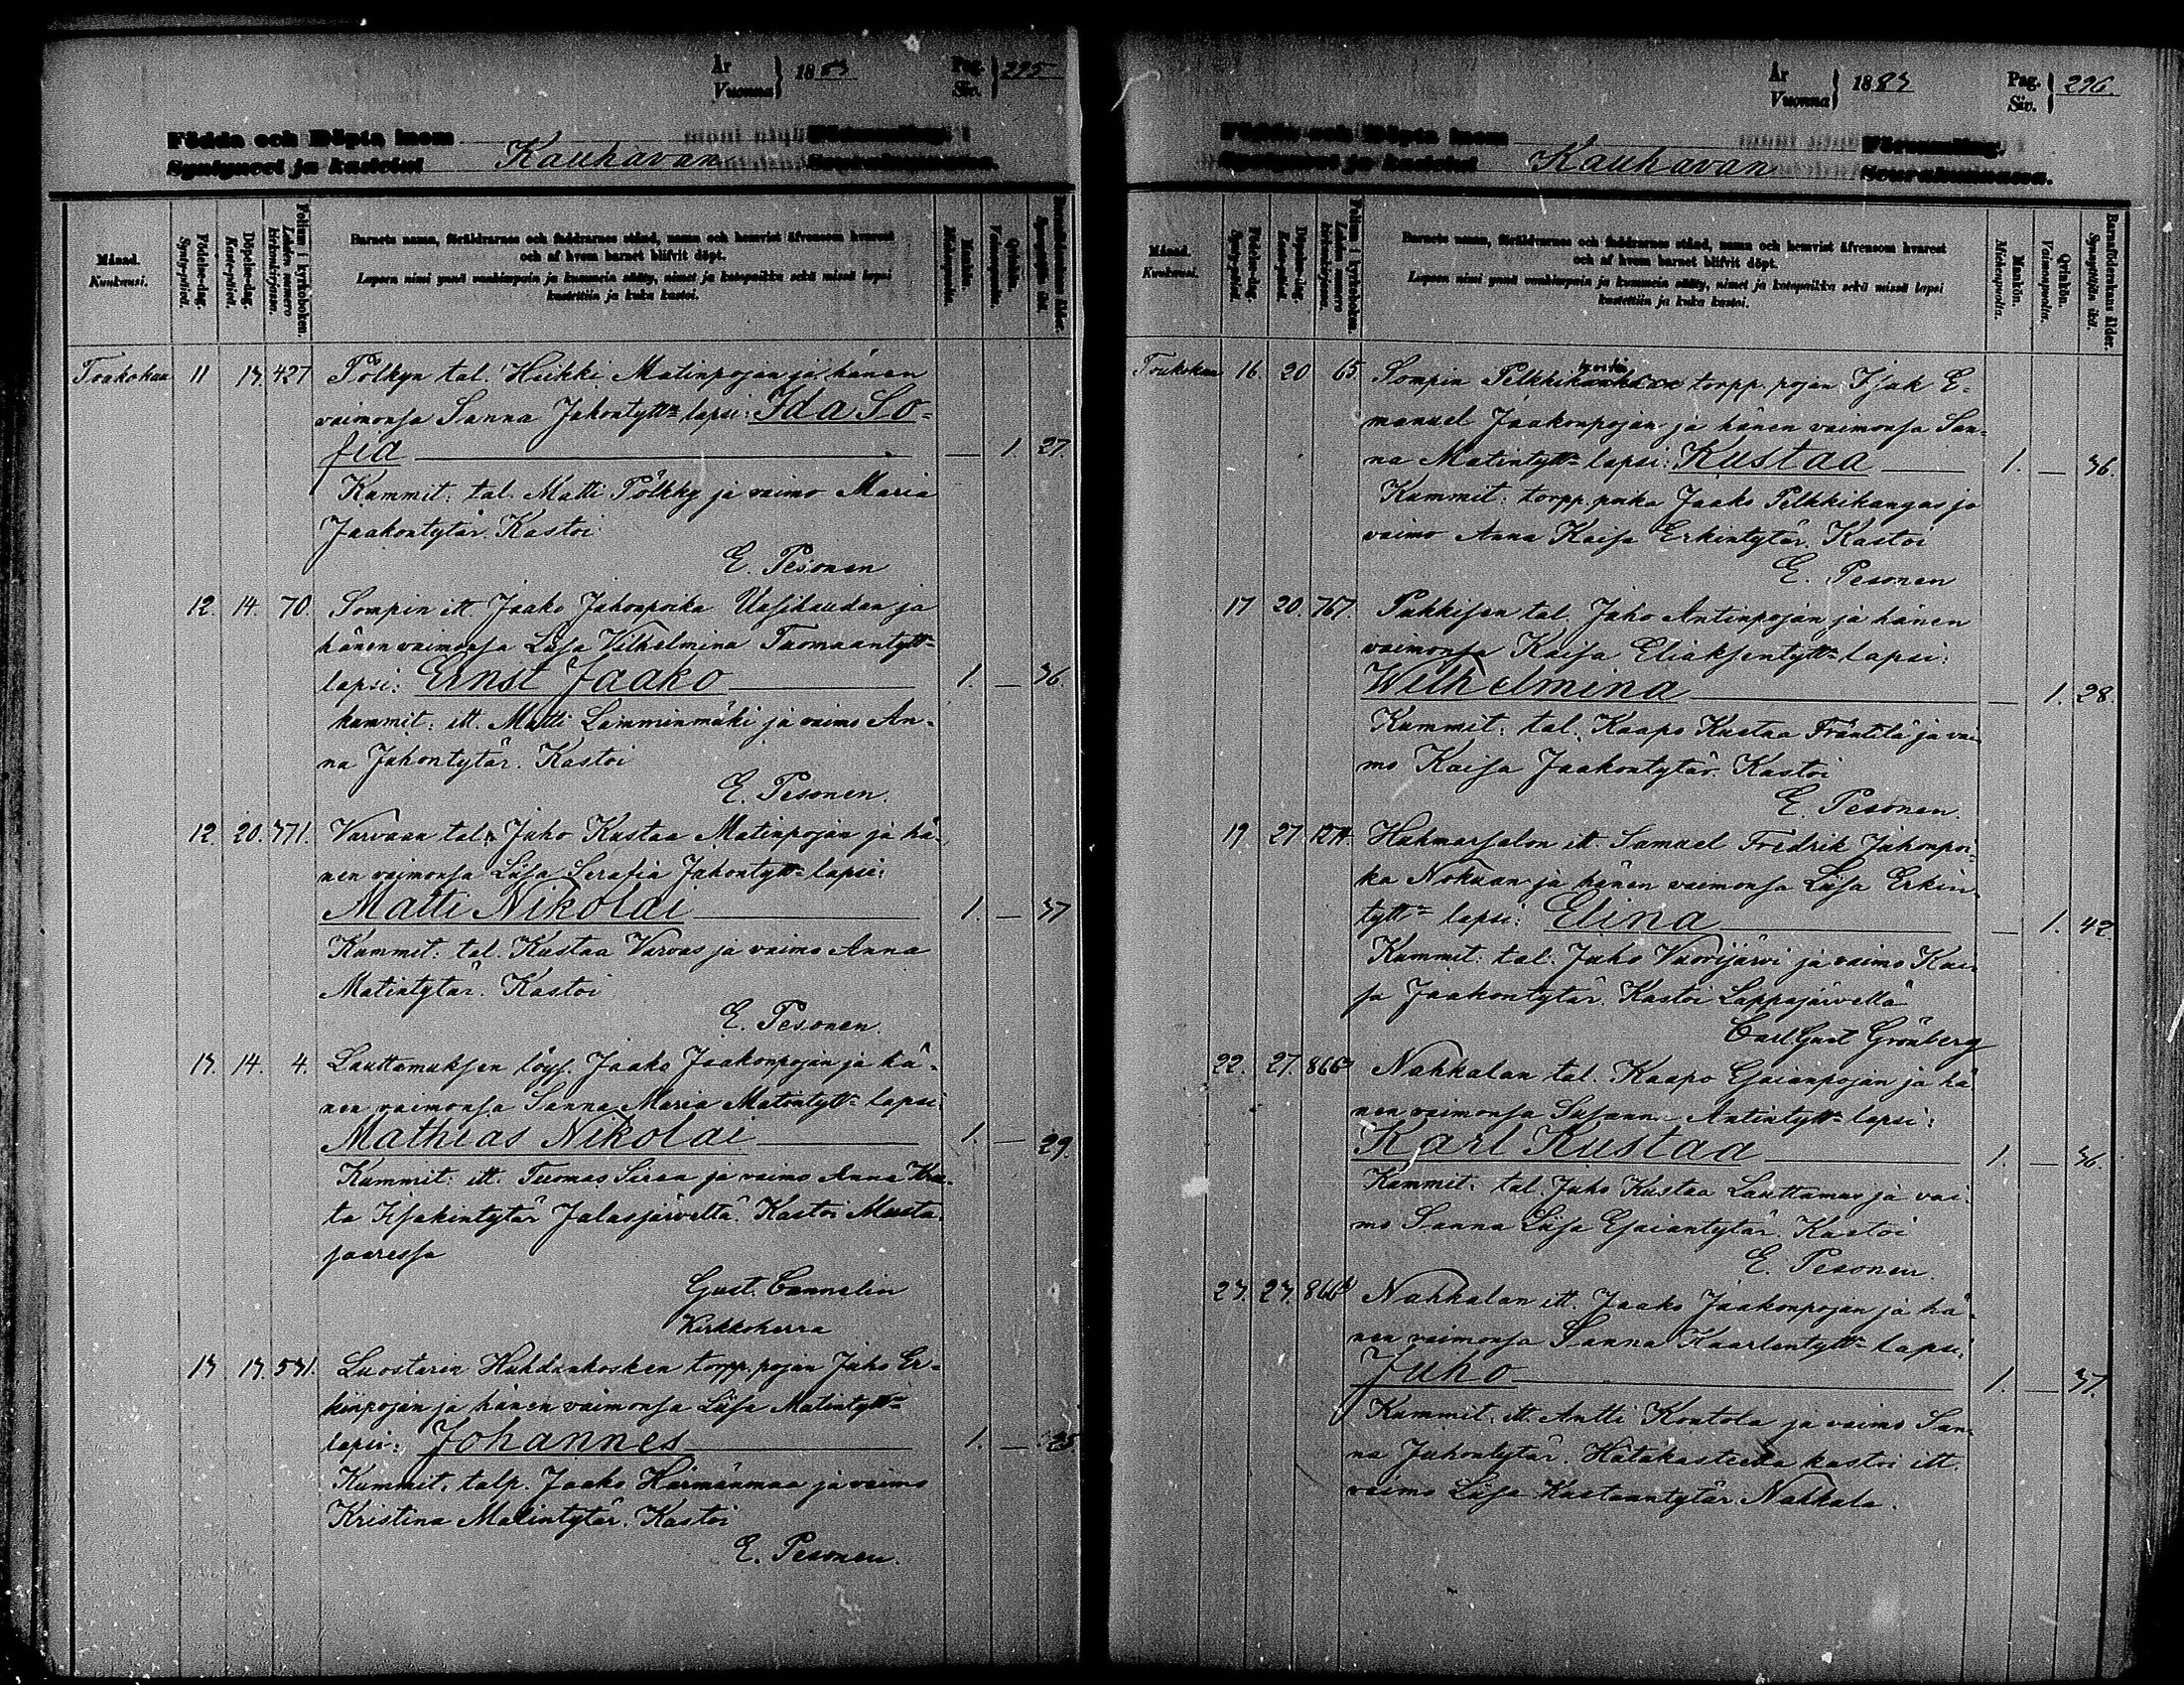 År
Vuonna } 1883
Pag.
Siv. } 295
Födda och Döpta inom
Syntyneet ja kastetut Kauhavan Församling.
Seurakunnassa.
Månad.
Kuukausi.
Födelse-dag.
Synty-päivä.
Döpelse-dag.
Kaste-päivä.
Folium i kyrkoboken.
Lehden numero kirkonkirjassa.
Barnets namn, föräldrarnes och faddrarnes stånd, namn och hemvist äfvensom hvarest
och af hvem barnet blifvit döpt.
Lapsen nimi ynnä vanhimpain ja kummein sääty, nimet ja kotopaikka sekä missä lapsi
kastettiin ja kuka kastoi.
Mankön.
Miehenpuolta.
Qvinkön.
Vaimonpuolta.
Barnaföderskans ålder.
Synnyttäjän ikä.
Toukokuu 11 13. 427 Pölkyn tal. Heikki Matinpojan ja hänen
vaimonsa Sanna Juhontytt= lapsi: Ida So=
fia — 1. 27.
Kummit: tal. Matti Pölkky ja vaimo Maria
Jaakontytär. Kastoi
E. Pesonen
12. 14. 70. Sompin itt. Jaako Juhonpoika Uusihaudan ja
hänen vaimonsa Liisa Vilhelmina Tuomaantytt=
lapsi: Ernst Jaako 1. — 36.
kummit: itt. Matti Lamminmäki ja vaimo An=
na Juhontytär. Kastoi
E. Pesonen.
12. 20. 371. Varvaan tal. Juho Kustaa Matinpojan ja hä=
nen vaimonsa Liisa Serafia Juhontytt= lapsi:
Matti Nikolai 1. — 37
Kummit: tal. Kustaa Varvas ja vaimo Anna
Matintytär. Kastoi
E. Pesonen.
13. 14. 4. Lauttamuksen löys. Jaako Jaakonpojan ja hä=
nen vaimonsa Sanna Maria Matintytt= lapsi:
Mathias Nikolai 1. — 29.
Kummit: itt. Tuomas Siren ja vaimo Anna Kre=
ta Isakintytär Jalasjärveltä. Kastoi Musta=
saaressa
Gust. Cannelin
Kirkkoherra
13 13. 531. Luostarin Huhdankosken torpp. pojan Juho Er=
kinpojan ja hänen vaimonsa Liisa Matintytt=
lapsi: Johannes 1. — 25
Kummit: talp. Jaako Härmänmaa ja vaimo
Kristina Matintytär. Kastoi
E. Pesonen.
År
Vuonna } 1883
Pag.
Siv. } 296.
Födda och Döpta inom
Syntyneet ja kastetut Kauhavan Församling.
Seurakunnassa.
Månad.
Kuukausi.
Födelse-dag.
Synty-päivä.
Döpelse-dag.
Kaste-päivä.
Folium i kyrkoboken.
Lehden numero kirkonkirjassa.
Barnets namn, föräldrarnes och faddrarnes stånd, namn och hemvist äfvensom hvarest
och af hvem barnet blifvit döpt.
Lapsen nimi ynnä vanhimpain ja kummein sääty, nimet ja kotopaikka sekä missä lapsi
kastettiin ja kuka kastoi.
Mankön.
Miehenpuolta.
Qvinkön.
Vaimonpuolta.
Barnaföderskans ålder.
Synnyttäjän ikä.
Toukokuu 16. 20 65. Sompin torpp. pojan Isak E=
manuel Jaakonpojan ja hänen vaimonsa San=
na Matintytt= lapsi: Kustaa 1. — 36.
Kummit: torpp. poika Jaako Pelkkikangas ja
vaimo Anna Kaisa Erkintytär. Kastoi
E. Pesonen
17 20. 767. Pukkisen tal. Juho Antinpojan ja hänen
vaimonsa Kaisa Eliaksentytt= lapsi:
Wilhelmina — 1. 28.
Kummit: tal. Kaapo Kustaa Fräntilä ja vai=
mo Kaisa Jaakontytär. Kastoi
E. Pesonen.
19 27. Huhmarsalon itt. Samuel Fredrik Juhonpoi=
ka Nokuan ja hänen vaimonsa Liisa Erkin=
tytt= lapsi: Elina — 1. 42
Kummit: tal. Juho Vuorijärvi ja vaimo Kai=
sa Jaakontytär. Kastoi Lappajärvellä
Carl Gust Grönberg
22. 27. 866 Nahkalan tal. Kaapo Esaianpojan ja hä
nen vaimonsa Susanna Antintytt= lapsi:
Karl Kustaa 1. — 36.
Kummit: tal. Juho Kustaa Lauttamus ja vai=
mo Sanna Liisa Esaiantytär. Kastoi
E. Pesonen.
23. 23. 866 Nahkalan itt. Jaako Jaakonpojan ja hä=
nen vaimonsa Sanna Kaarlentytt= lapsi:
Juho 1. — 37.
Kummit: itt. Antti Kontola ja vaimo San=
na Juhontytär. Hätäkasteella kastoi itt.
vaimo Liisa Kustaantytär Nahkala.